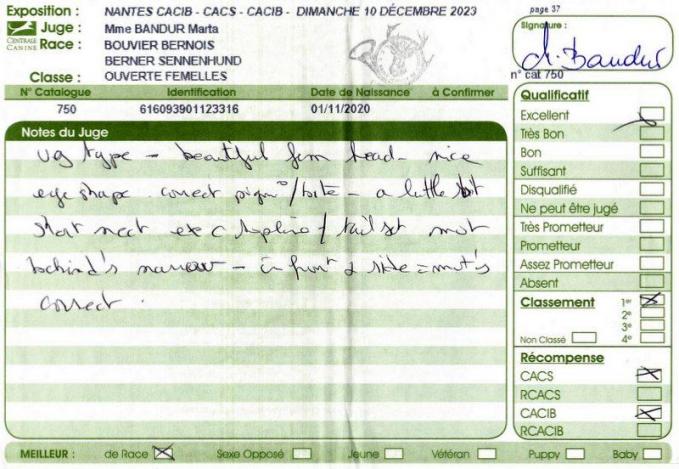 Exposition : NANTES CACIB - CACS - CACIB - DIMANCHE 10 DÉCEMBRE 2023
page 37
CENTRALE CANINE
Juge : Mme BANDUR Marta
Signature :
M. Bandur
Race : BOUVIER BERNOIS
BERNER SENNENHUND
Classe : OUVERTE FEMELLES
n° cat 750
N° Catalogue Identification Date de Naissance à Confirmer
750 616093901123316 01/11/2020
Notes du Juge
type - beautiful fem head - nice
eye shape. correct /bite - a little
short neck exc topline / tail set
behind's narrow - in front & side =
correct.
Qualificatif
Excellent
Très Bon
Bon
Suffisant
Disqualifié
Ne peut être jugé
Très Prometteur
Prometteur
Assez Prometteur
Absent
Classement 1er
2e
3e
Non Classé 4e
Récompense
CACS
RCACS
CACIB
RCACIB
MEILLEUR : de Race Sexe Opposé Jeune Vétéran Puppy Baby